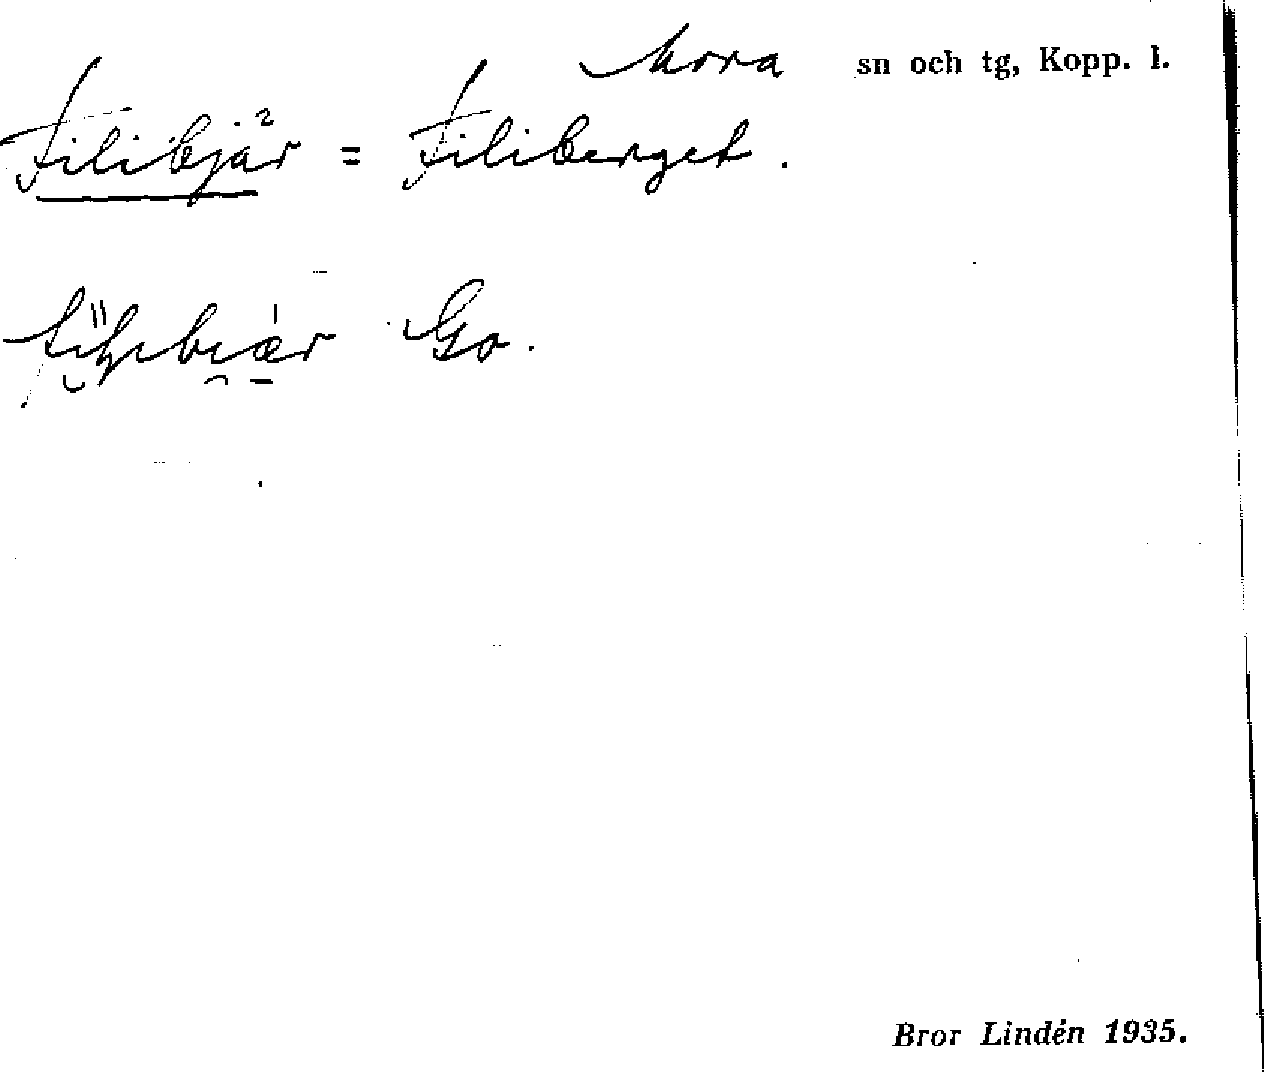 Mora sn och tg, Kopp. l.
Filibjär = Filiberget.
Go.
Bror Lindén 1935.